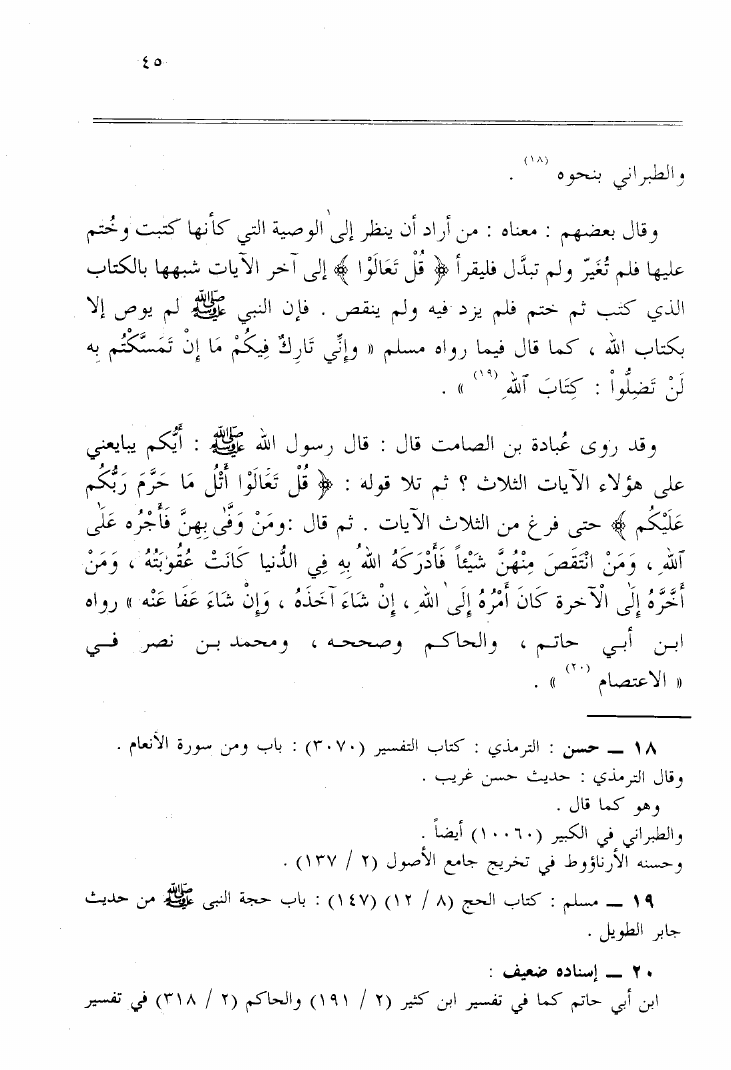 ٤٥
والطبراني بنحوه (١٨) .
وقال بعضهم : معناه : من أراد أن ينظر إلى الوصية التي كأنها كتبت وخُتم
عليها فلم تُغيَّر ولم تبدَّل فليقرأ ﴿ قُلْ تَعَالَوْا ﴾ إلى آخر الآيات شبهها بالكتاب
الذي كتب ثم ختم فلم يزد فيه ولم ينقص . فإن النبي ﷺ لم يوص إلا
بكتاب الله ، كما قال فيما رواه مسلم « وإنِّي تَارِكٌ فِيكُمْ مَا إنْ تَمَسَّكْتُم بِه
لَنْ تَضِلُّواْ : كِتَابَ ٱللهِ (١٩) » .
وقد روى عُبادة بن الصامت قال : قال رسول الله ﷺ : أيُّكم يبايعني
على هؤلاء الآيات الثلاث ؟ ثم تلا قوله : ﴿ قُلْ تَعَالَوْا أَتْلُ مَا حَرَّمَ رَبُّكُم
عَلَيْكُم ﴾ حتى فرغ من الثلاث الآيات . ثم قال :ومَنْ وَفَّى بِهِنَّ فَأَجْرُه عَلَى
ٱللهِ ، وَمَنْ انْتَقَصَ مِنْهُنَّ شَيْئاً فَأدْرَكَهُ اللهُ بِهِ فِي الدُّنيا كَانَتْ عُقُوبَتُهُ ، وَمَنْ
أَخَّرَهُ إلَى الْآخرة كَانَ أمْرُهُ إلَى اللهِ ، إنْ شَاءَ آخَذَهُ ، وَإنْ شَاءَ عَفَا عَنْه » رواه
ابـن أبـي حاتـم ، والحاكـم وصححـه ، ومحمـد بـن نصـر فـي
« الاعتصام (٢٠) » .
١٨ ــ حسن : الترمذي : كتاب التفسير (٣٠٧٠) : باب ومن سورة الأنعام .
وقال الترمذي : حديث حسن غريب .
وهو كما قال .
والطبراني في الكبير (١٠٠٦٠) أيضاً .
وحسنه الأرناؤوط في تخريج جامع الأصول (٢ / ١٣٧) .
١٩ ــ مسلم : كتاب الحج (٨ / ١٢) (١٤٧) : باب حجة النبى ﷺ من حديث
جابر الطويل .
٢٠ ــ إسناده ضعيف :
ابن أبي حاتم كما في تفسير ابن كثير (٢ / ١٩١) والحاكم (٢ / ٣١٨) في تفسير